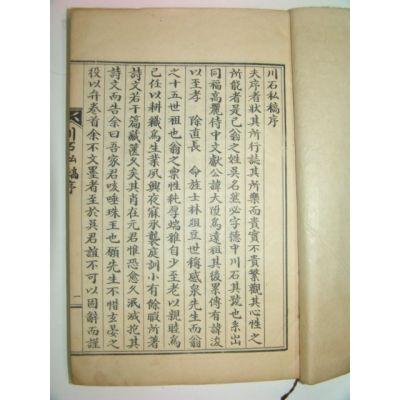 川石私稿序
夫序者狀其所行誌其所樂而貴實不貴繁觀其心性之
所能者是已翁之姓吳名是必字德中川石其號也系出
同福高麗侍中文獻公諱大陞爲遠祖其後累傳有諱浚
以至孝 除直長 命旌士林俎豆世稱感泉先生而翁
之十五世祖也翁之禀性純厚端雅自少至老以親睦爲
己任以耕織爲生業夙興夜寐承襲庭訓小有餘暇所著
詩文若干篇藏篋久矣其肖在元君惟恐愈久泯滅抱其
詩文而告余曰吾家君咳唾珠玉也願先生不惜玄晏之
役以弁卷首余不文墨者至於其君誼不可以固辭而謹
川石私稿序
一